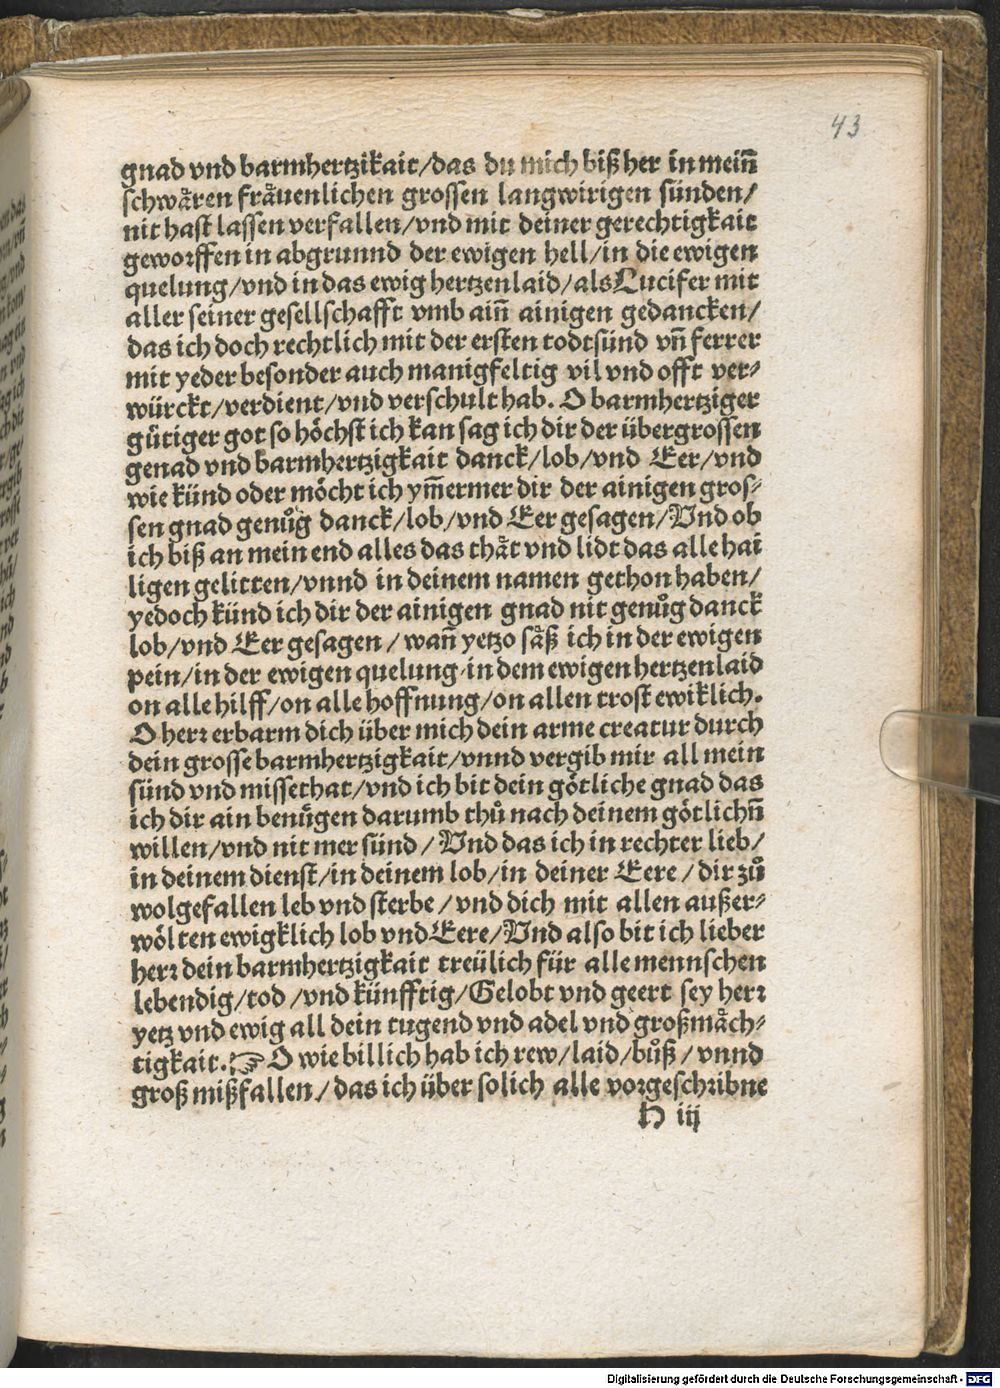 43
gnad vnd barmhertzikait/das du mich biß her in mein̄
schwären fräuenlichen grossen langwirigen sünden/
nit hast lassen verfallen/vnd mit deiner gerechtigkait
geworffen in abgrunnd der ewigen hell/in die ewigen
quelung/vnd in das ewig hertzenlaid/als Lucifer mit
aller seiner gesellschafft vmb ain̄ ainigen gedancken/
das ich doch rechtlich mit der ersten todtsünd vn̄ ferrer
mit yeder besonder auch manigfeltig vil vnd offt ver⸗
würckt/verdient/vnd verschult hab. O barmhertziger
gütiger got so höchst ich kan sag ich dir der übergrossen
genad vnd barmhertzigkait danck/lob/vnd Eer/vnd
wie künd oder möcht ich ym̄ermer dir der ainigen gros⸗
sen gnad genůg danck/lob/vnd Eer gesagen/Vnd ob
ich biß an mein end alles das thät vnd lidt das alle hai
ligen gelitten/vnnd in deinem namen gethon haben/
yedoch künd ich dir der ainigen gnad nit genůg danck
lob/vnd Eer gesagen/wan̄ yetzo säß ich in der ewigen
pein/in der ewigen quelung·in dem ewigen hertzenlaid
on alle hilff/on alle hoffnung/on allen trost ewiklich.
O herꝛ erbarm dich über mich dein arme creatur durch
dein grosse barmhertzigkait/vnnd vergib mir all mein
sünd vnd missethat/vnd ich bit dein götliche gnad das
ich dir ain benügen darumb thů nach deinem götlichn̄
willen/vnd nit mer sünd/Vnd das ich in rechter lieb/
in deinem dienst/in deinem lob/in deiner Eere/dir zů
wolgefallen leb vnd sterbe/vnd dich mit allen außer⸗
wölten ewigklich lob vnd Eere/Vnd also bit ich lieber
herꝛ dein barmhertzigkait treülich für alle mennschen
lebendig/tod/vnd künfftig/Gelobt vnd geert sey herꝛ
yetz vnd ewig all dein tugend vnd adel vnd großmäch⸗
tigkait.☞ O wie billich hab ich rew/laid/bůß/vnnd
groß mißfallen/das ich über solich alle voꝛgeschꝛibne
H iij
Digitalisierung gefördert durch die Deutsche Forschungsgemeinschaft - DFG